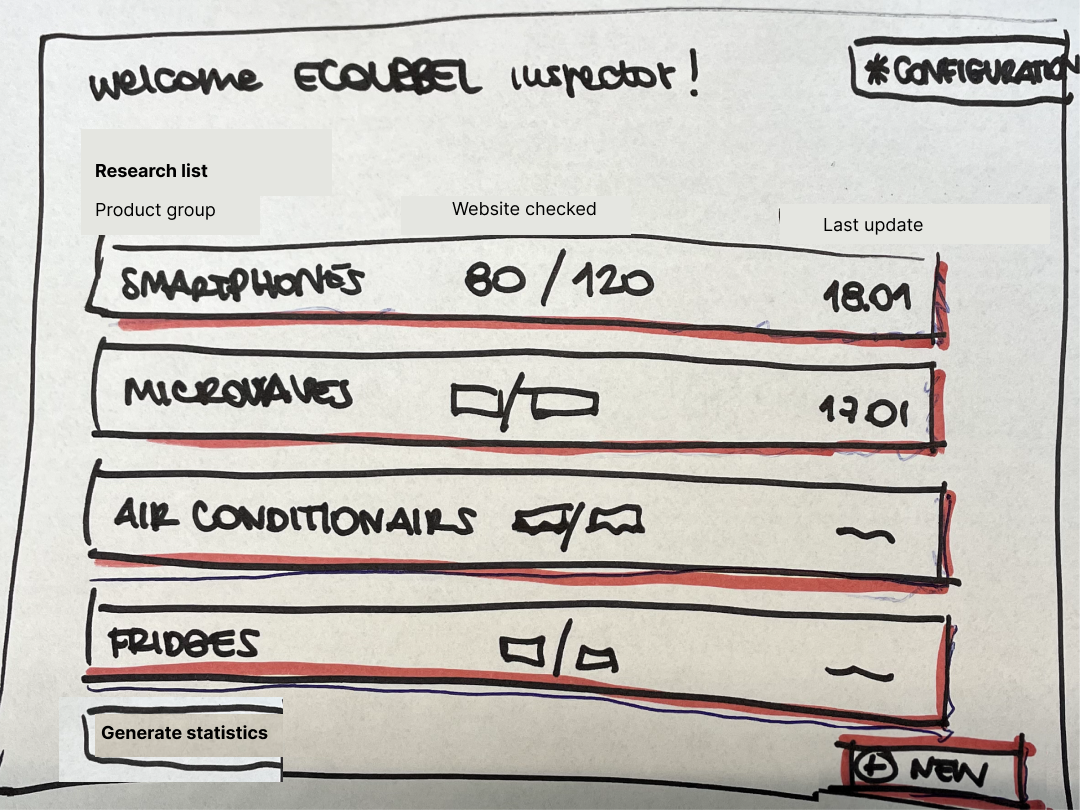 welcome ECOLABEL inspector!
*CONFIGURATION
Research list
Product group Website checked Last update
SMARTPHONES 80 / 120 18.01
MICROWAVES / 17.01
AIR CONDITIONAIRS /
FRIDGES /
Generate statistics
+ NEW